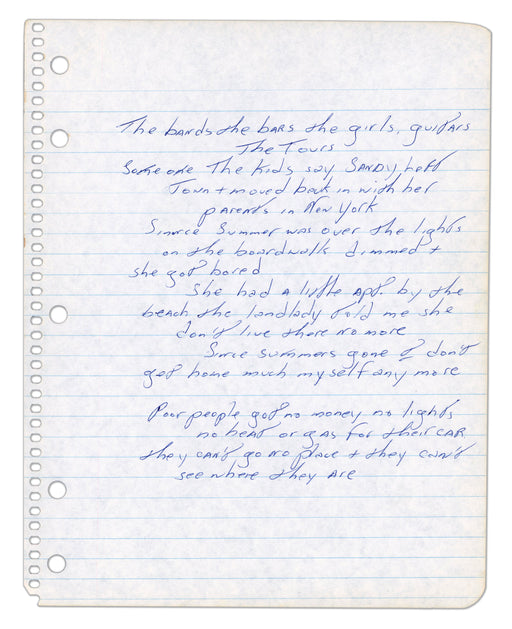 The bands the bars the girls, guitars
The Tours
Someone The Kids say SANDY, Left
Town + moved back in with her
parents in New York
Sinnce Summer was over the lights
on the boardwalk dimmed +
she got bored
She had a little Apt. by the
beach the landlady told me she
don't live there no more
Since summers gone I don't
get home much myself any more
Poor people got no money no lights
no heat or gas for their CAR
they can't go no place + they can't
see where they are